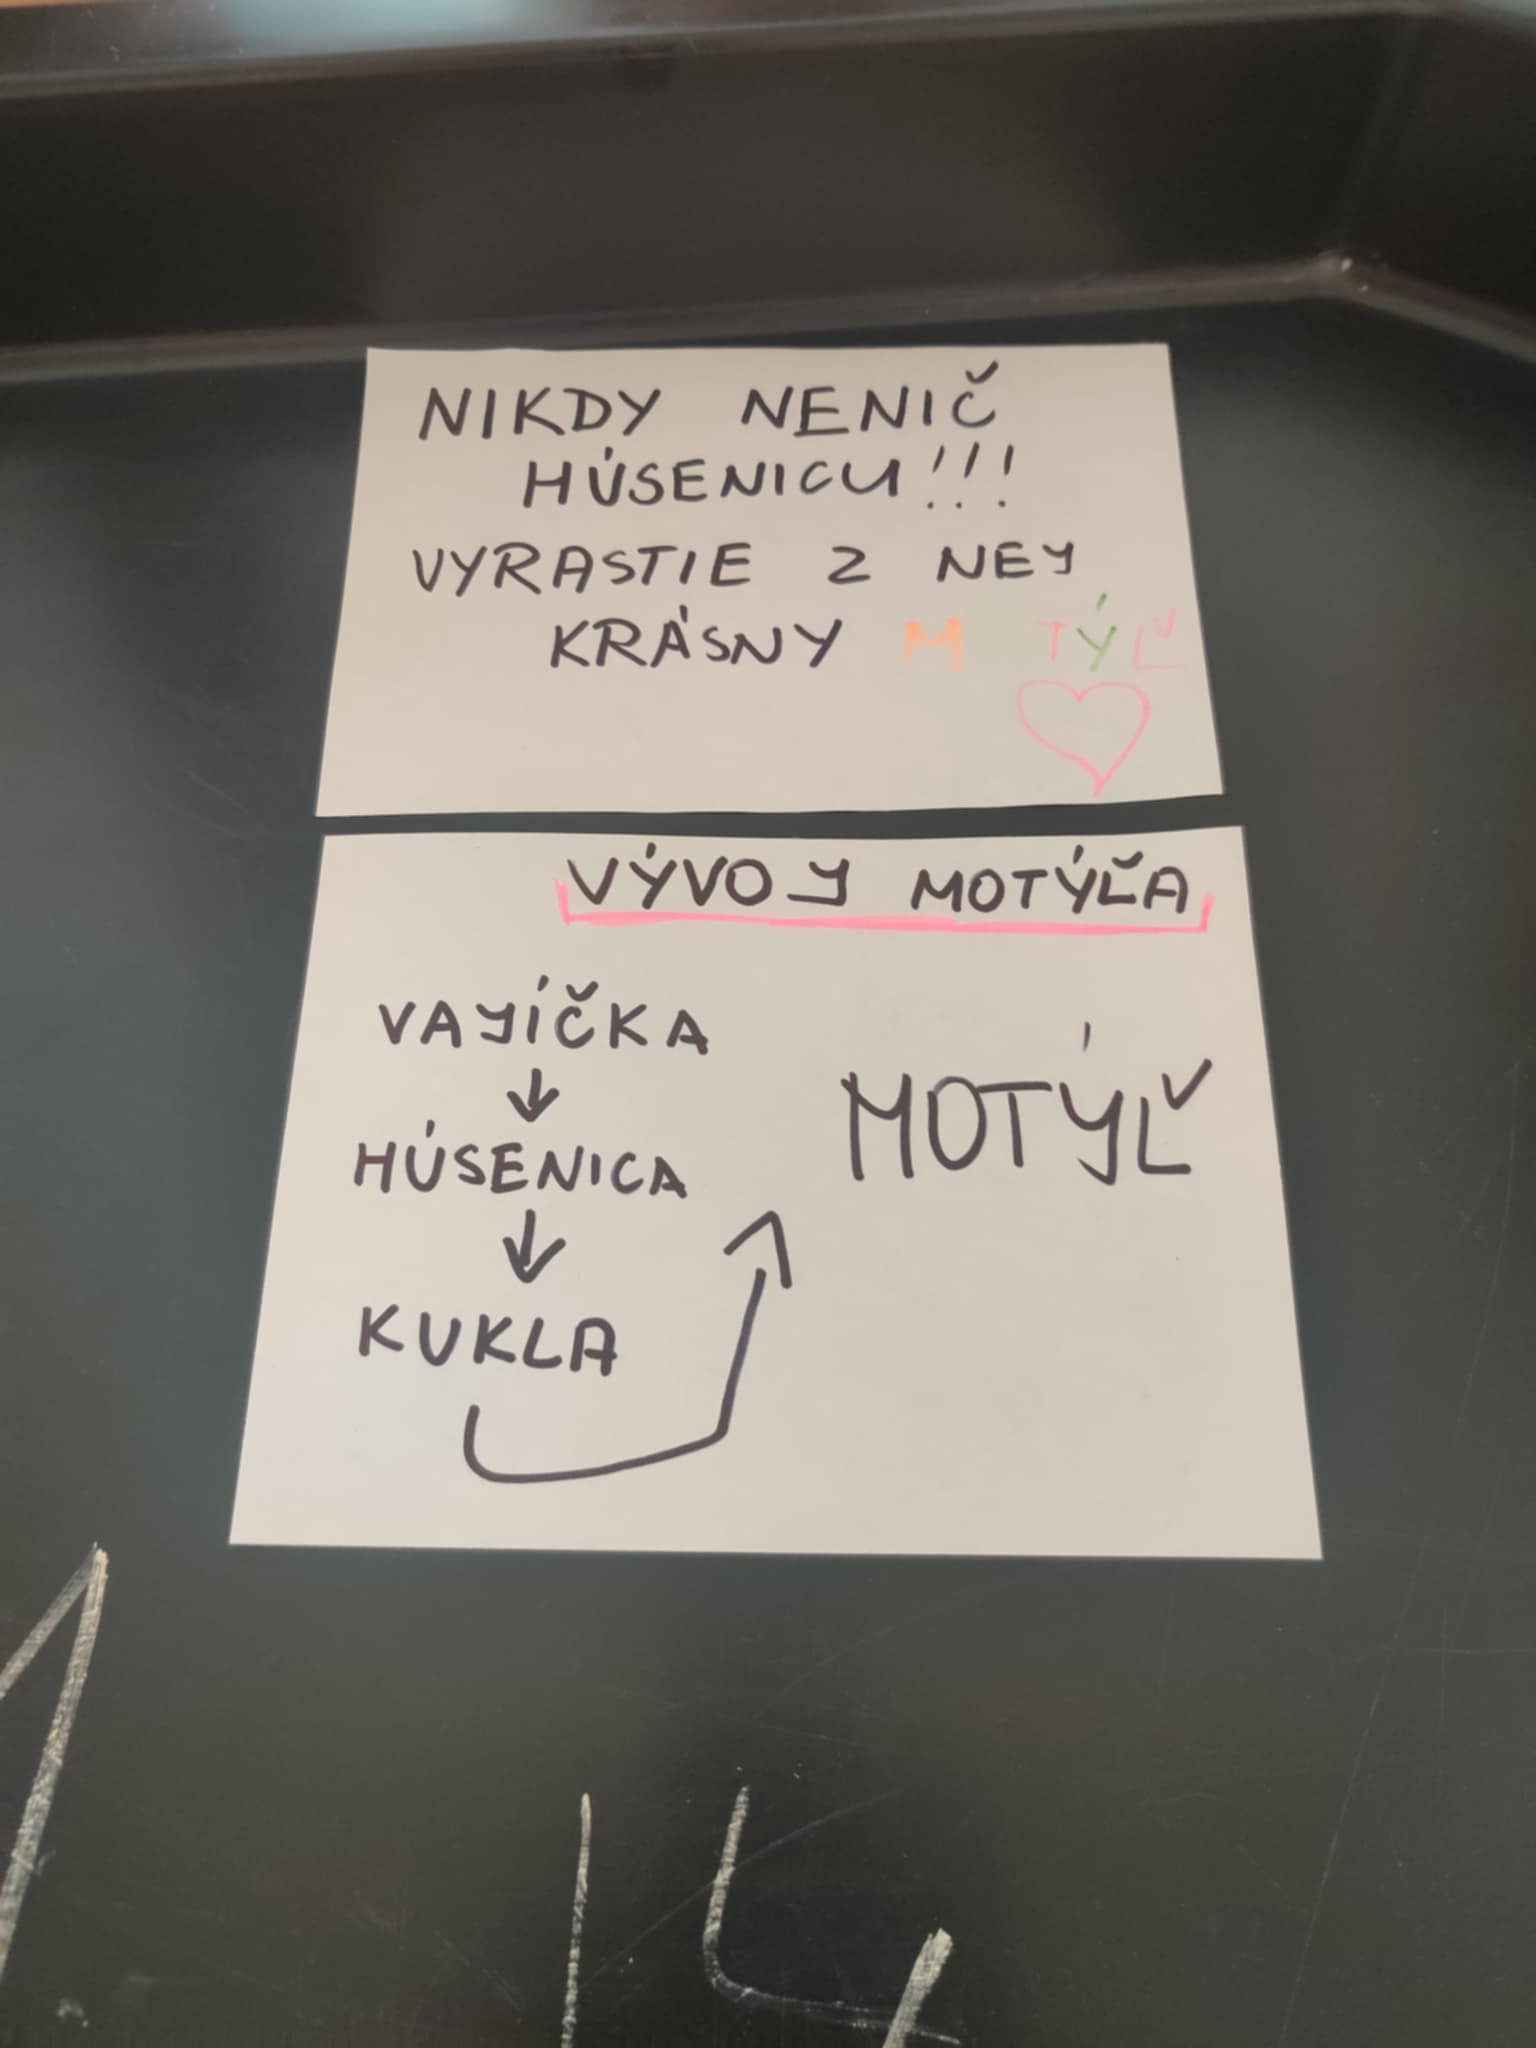 NIKDY NENIČ
HÚSENICU!!!
VYRASTIE Z NEJ
KRÁSNY M TÝĽ
VÝVOJ MOTÝĽA
VAJÍČKA
↓
HÚSENICA
↓
KUKLA
MOTÝĽ
14